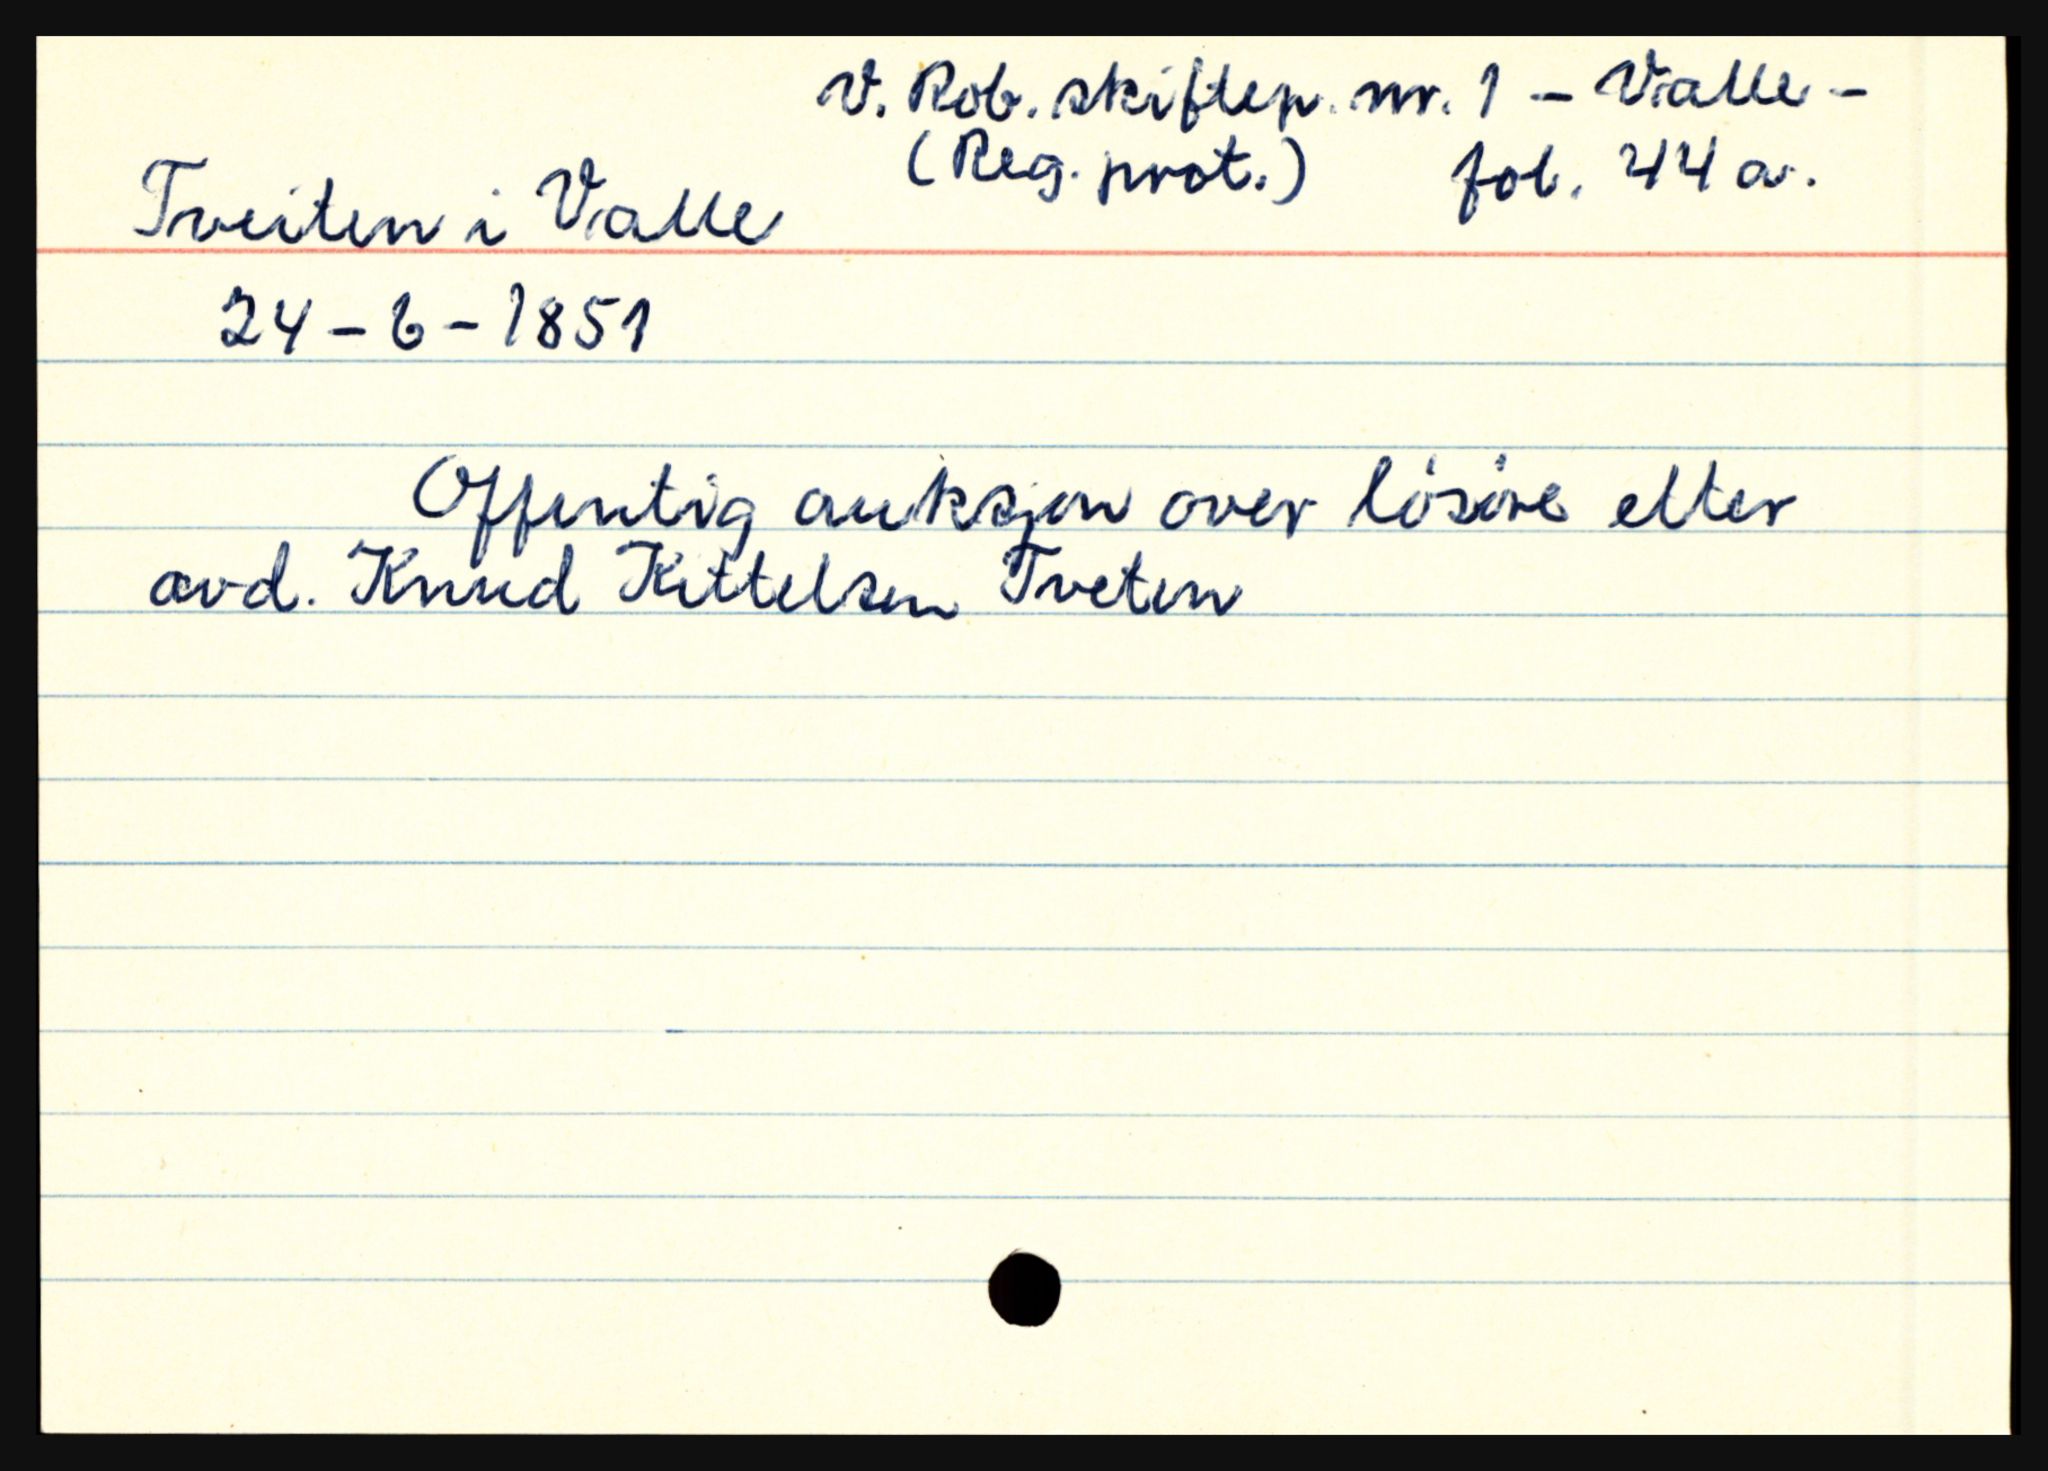 V. Rob. skiftep. nr. 1 - Valle -
(Reg. prot.) fol. 44 a.
Tveiten i Valle
24-6-1851
Offentlig auksjon over lösöre etter
avd. Knud Kittelsen Tveten